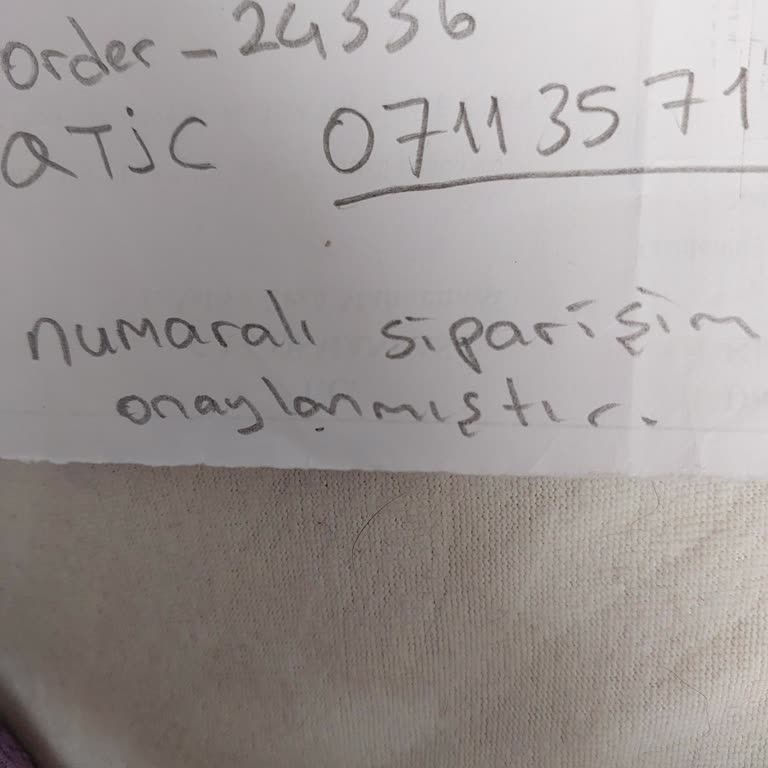 order - 24336
aTjC 07113571
numaralı siparişim
onaylanmıştır.